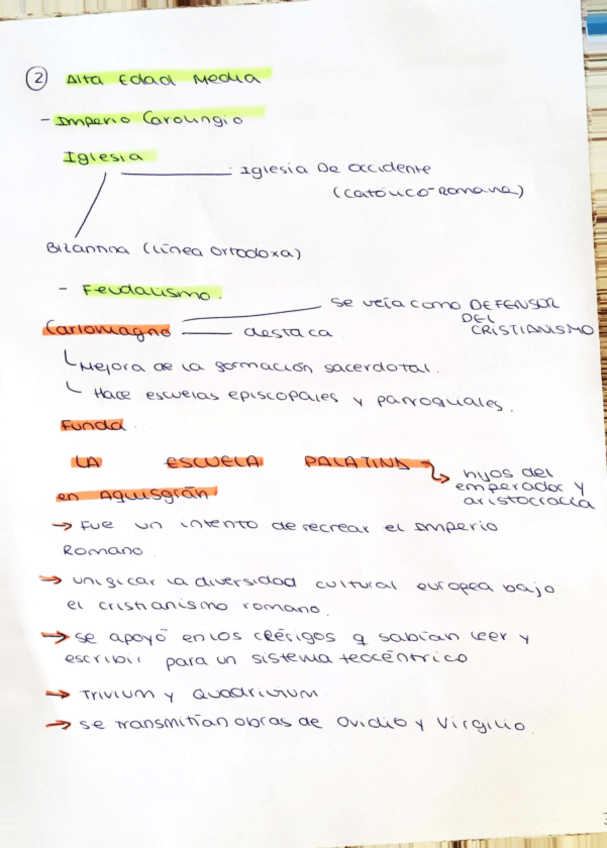 ② Alta Edad Media
- Imperio Carolingio
Iglesia
: Iglesia De Occidente
(católico-Romana)
Bizantina (línea ortodoxa)
- Feudalismo.
Se veía como DEFENSOR
DEL
CRISTIANISMO
Carlomagno destaca
Mejora de la formación sacerdotal.
Hace escuelas episcopales y parroquiales.
Funda.
LA ESCUELA PALATINA
hijos del
emperador y
aristocracia
en Aquisgrán
→ Fue un intento de recrear el Imperio
Romano.
→ unificar la diversidad cultural europea bajo
el cristianismo romano.
→ se apoyó en los clérigos q sabían leer y
escribir para un sistema teocéntrico
→ Trivium y Quadrivium
→ se transmitían obras de Ovidio y Virgilio.